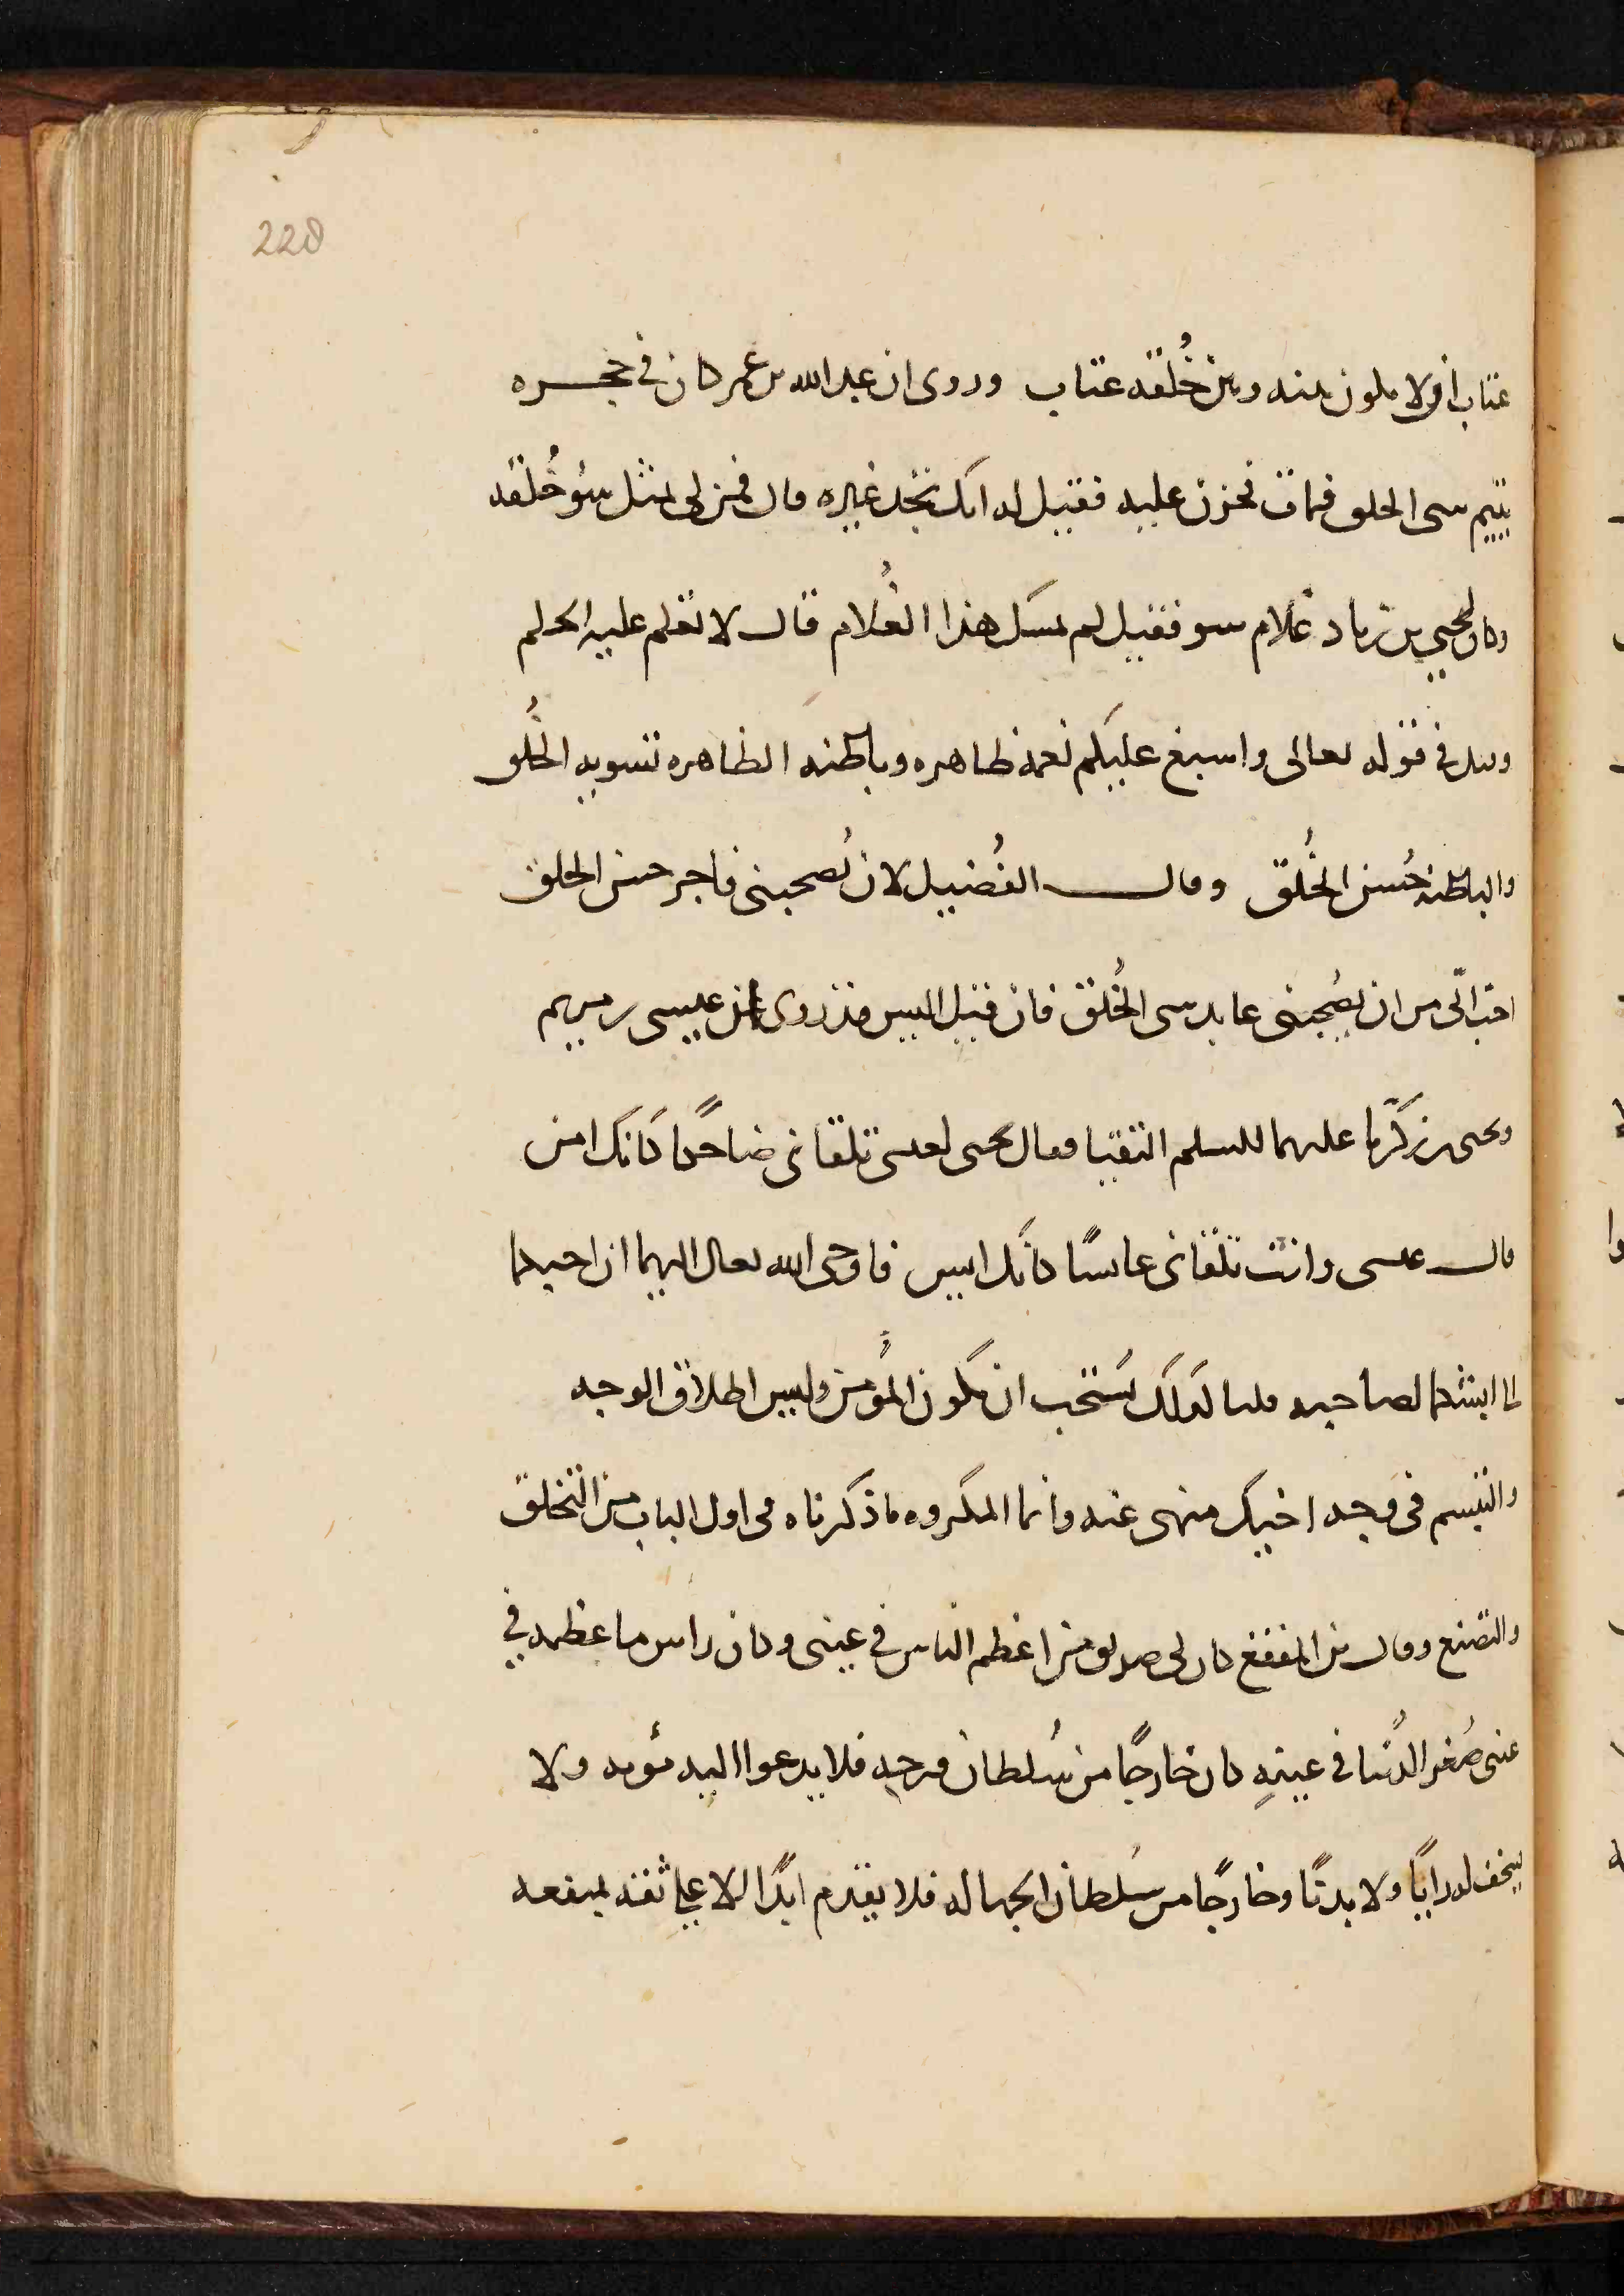 228
عتاب أو لا يكون بينه وبين خُلقه عتاب وروى ان عبد الله بن عمر كان في حجره
يتيم سي الخلق فمات فحزن عليه فقيل له انك تجد غيره قال فمن لي بمثل سُو خُلقه
وكان ليحيي بن زياد غلام سو فقيل لم تمسك هذا الغُلام قال لا تعلم عليه الحلم
وقيل في قوله تعالى واسبغ عليكم نعمة ظاهره وباطنه الظاهره تسويه الخلُق
والباطنة حُسن الخُلق وقال الفُضيل لان يُصحبني فاجر حسن الخلق
احبّ الىّ من ان يصُحبني عابد سي الخُلق فان قيل اليس قد روى ان عيسى بن مريم
ويحيى بن زكرّيا عليهما السلم التقيا فقال يحيى لعيسى تلقاني ضاحكًا كأنك امن
قال عيسى وانت تلقاني عابسًا كأنك ايس فاوحى الله تعالى اليهما ان احبكما
الى ابشكما لصاحبه قلنا كذلك نستحب ان يكون المؤُمن وليس اطلاق الوجه
والتبسم في وجه اخيك منهى عنه وانما المكروه ما ذكرناه في اول الباب من التخلق
والتصنع وقال بن المقفع كان لي صديق من اعظم الناس في عيني وكان راس ما عظمه في
عيني صُغر الدُنيا في عينهِ كان خارجًا من سُلطان فرجه فلا يدعوا اليه مؤنه ولا
يستخف له رايًا ولا بدنًا وخارجًا من سُلطان الجهاله فلا يقدم ابدًا الا على ثقه بمنفعه